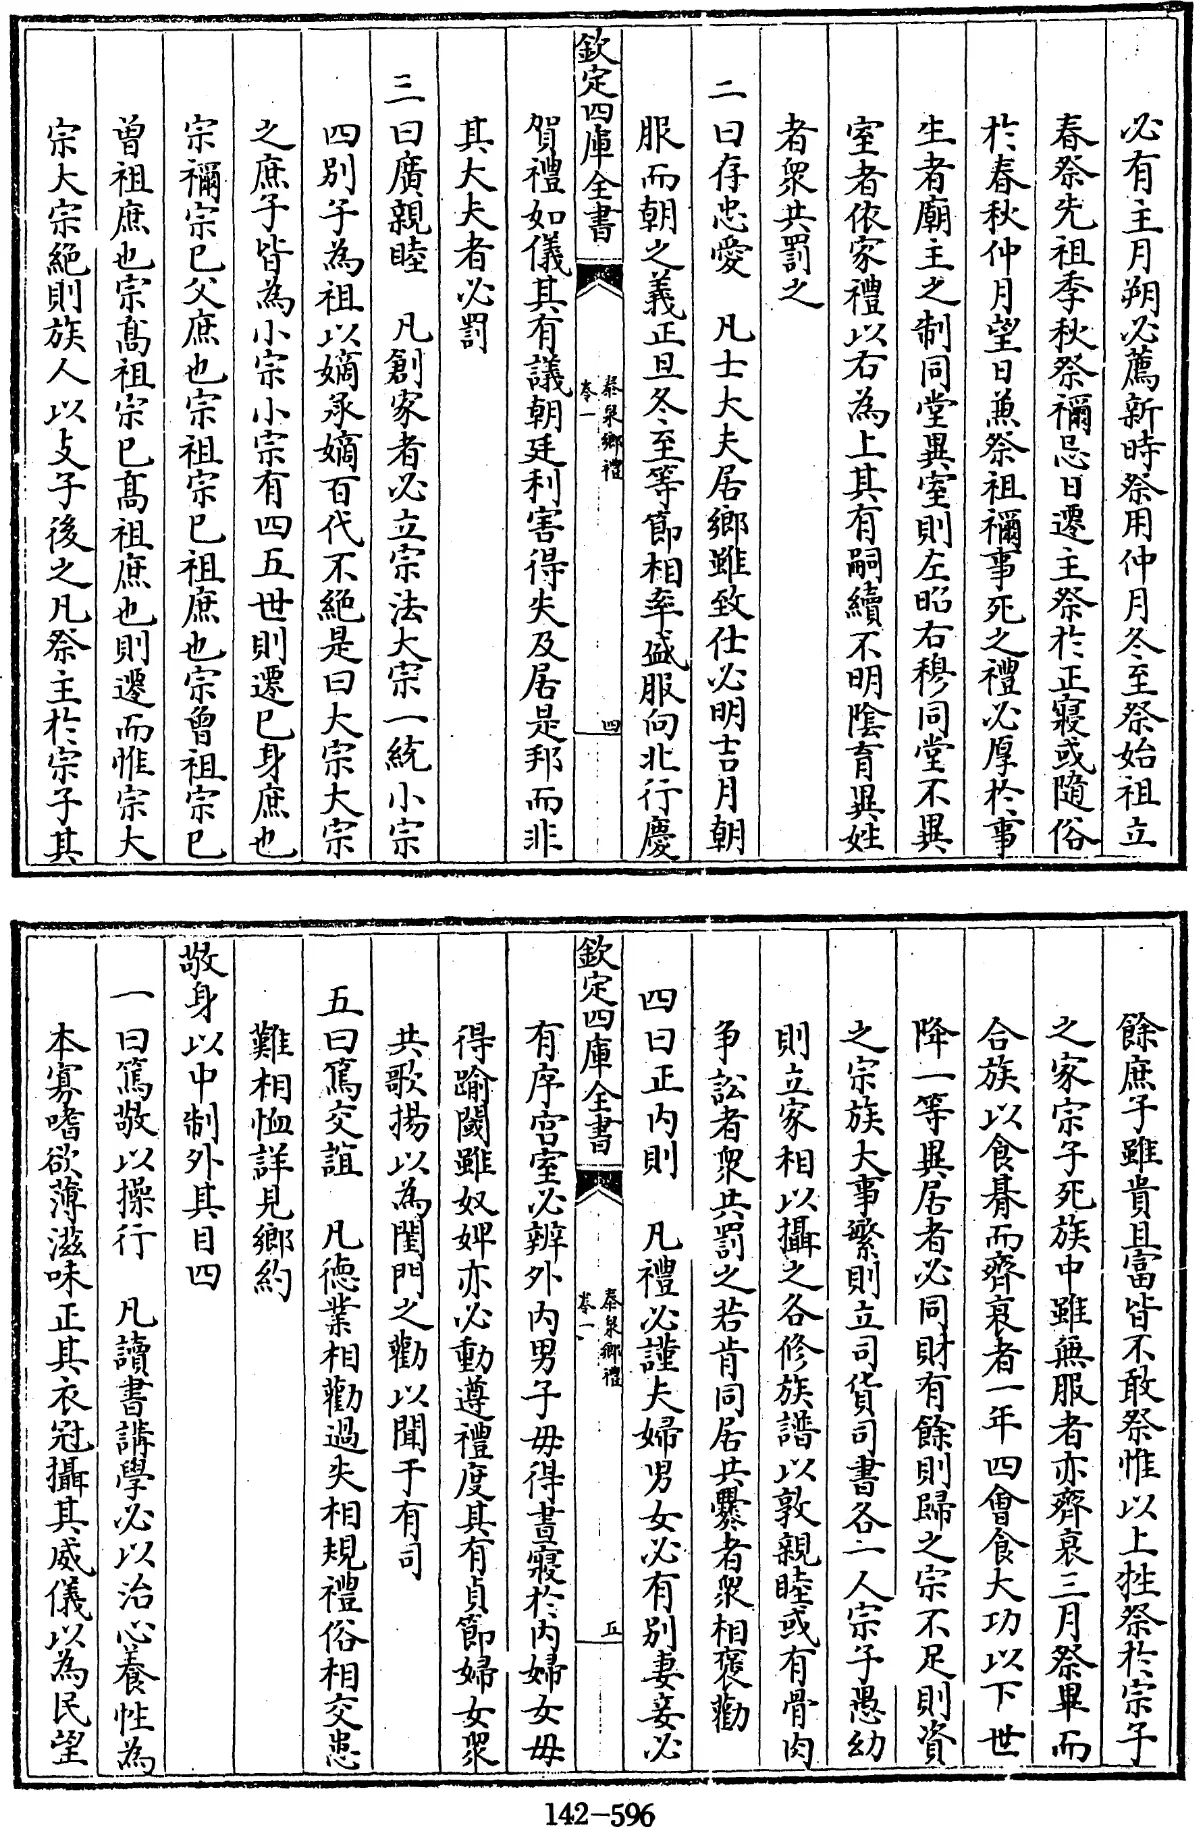 必有主月朔必薦新時祭用仲月冬至祭始祖立
春祭先祖季秋祭禰忌日遷主祭於正寢或隨俗
於春秋仲月望日兼祭祖禰事死之禮必厚於事
生者廟主之制同堂異室則左昭右穆同堂不異
室者依家禮以右為上其有嗣續不明隂育異姓
者衆共罰之
二曰存忠愛　凡士大夫居鄉雖致仕必明吉月朝
服而朝之義正旦冬至等節相率盛服向北行慶
欽定四庫全書
泰泉鄉禮
卷一
四
賀禮如儀其有議朝廷利害得失及居是邦而非
其大夫者必罰
三曰廣親睦　凡創家者必立宗法大宗一統小宗
四別子為祖以嫡承嫡百代不絶是曰大宗大宗
之庶子皆為小宗小宗有四五世則遷已身庶也
宗禰宗已父庶也宗祖宗已祖庶也宗曾祖宗已
曾祖庶也宗髙祖宗已髙祖庶也則遷而惟宗大
宗大宗絶則族人以支子後之凡祭主於宗子其
餘庶子雖貴且富皆不敢祭惟以上牲祭於宗子
之家宗子死族中雖無服者亦齊衰三月祭畢而
合族以食朞而齊衰者一年四會食大功以下世
降一等異居者必同財有餘則歸之宗不足則資
之宗族大事繁則立司貨司書各一人宗子愚幼
則立家相以攝之各修族譜以敦親睦或有骨肉
爭訟者衆共罰之若肯同居共爨者衆相褒勸
四曰正内則　凡禮必謹夫婦男女必有別妻妾必
欽定四庫全書
泰泉鄉禮
卷一
五
有序宫室必辨外内男子毋得晝寢於内婦女毋
得踰閾雖奴婢亦必動遵禮度其有貞節婦女衆
共歌揚以為閨門之勸以聞于有司
五曰篤交誼　凡徳業相勸過失相規禮俗相交患
難相恤詳見鄉約
敬身以中制外其目四
一曰篤敬以操行　凡讀書講學必以治心養性為
本寡嗜欲薄滋味正其衣冠攝其威儀以為民望
142-596